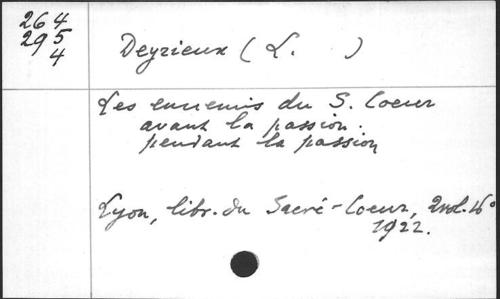 264
295
4
Deyrieux (L. )
Les ennemis du S. Coeur
avant la passion.
pendant la passion
Lyon, libr. du Sacré-Coeur, 2 vol. 16°
1922.